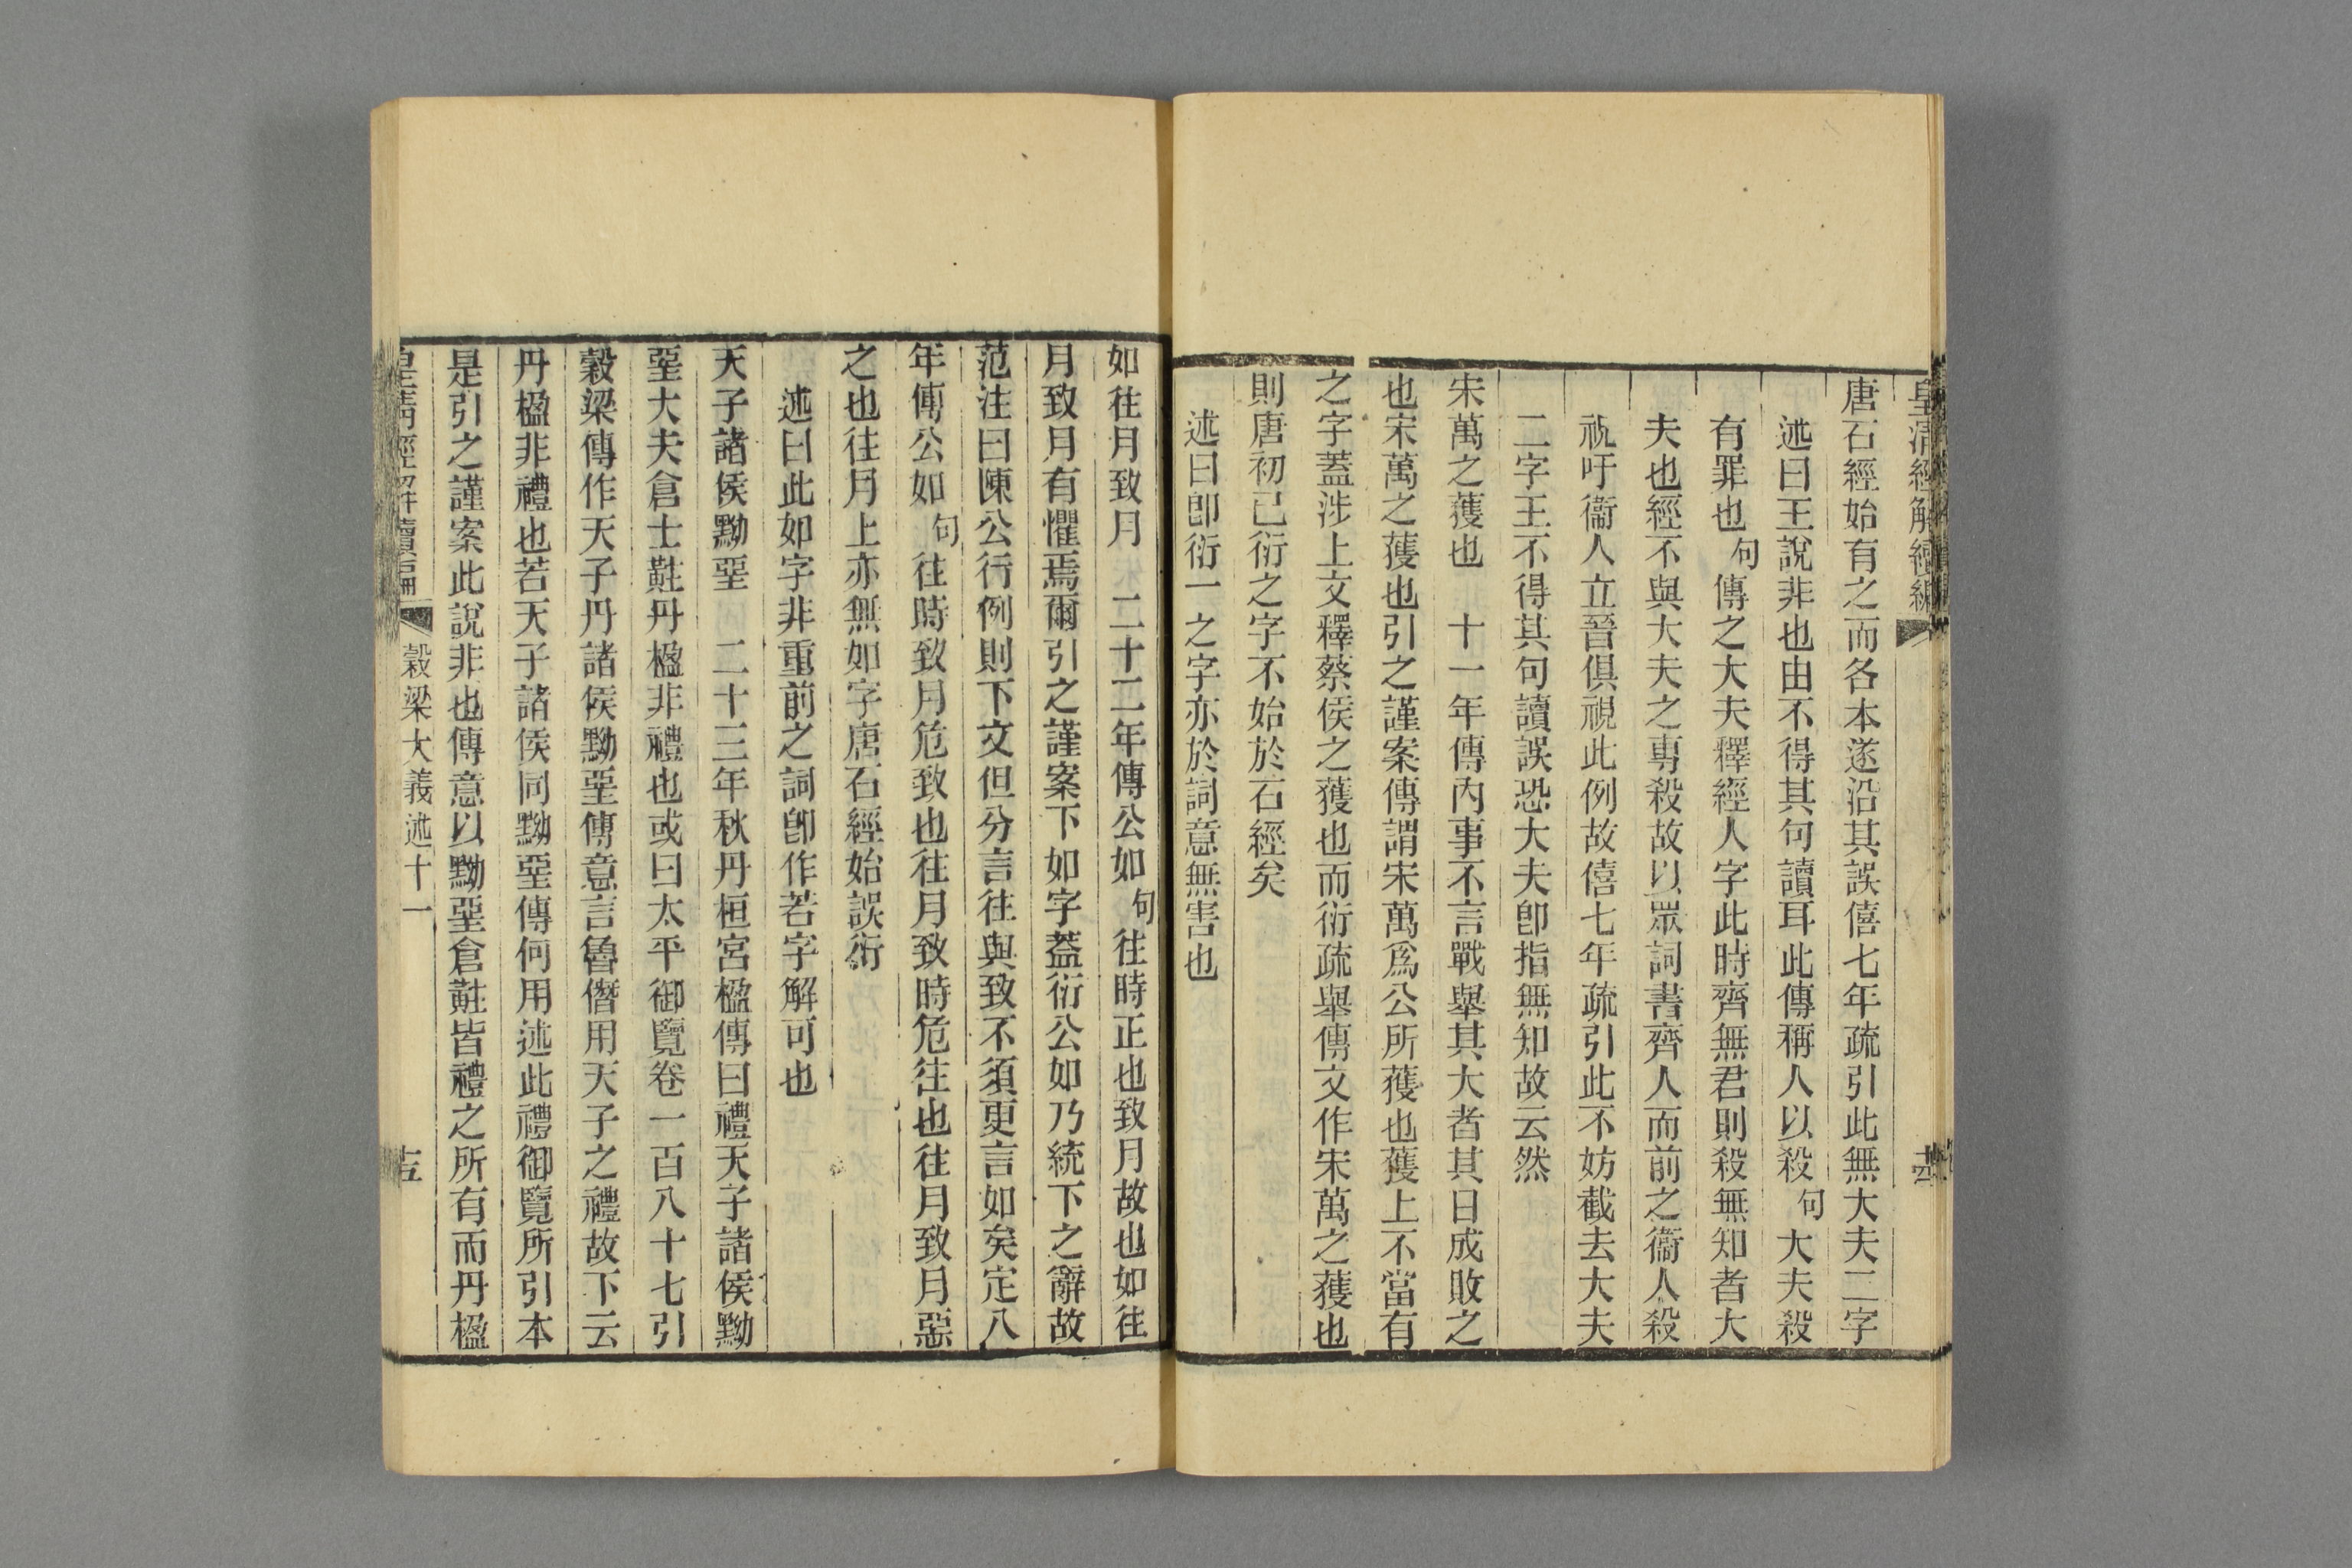 皇清經解續編
唐石經始有之而各本遂沿其誤僖七年疏引此無大夫二字
述曰王說非也由不得其句讀耳此傳稱人以殺句大夫殺
有罪也句傳之大夫釋經人字此時齊無君則殺無知者大
夫也經不與大夫之專殺故以眾詞書齊人而前之衞人殺
祝吁衞人立晉俱視此例故僖七年疏引此不妨截去大夫
二字王不得其句讀誤恐大夫卽指無知故云然
宋萬之獲也 十一年傳內事不言戰舉其大者其日成敗之
也宋萬之獲也引之謹案傳謂宋萬爲公所獲也獲上不當有
之字蓋涉上文釋蔡侯之獲也而衍疏舉傳文作宋萬之獲也
則唐初已衍之字不始於石經矣
述曰卽衍一之字亦於詞意無害也
如往月致月 二十二年傳公如句往時正也致月故也如往
月致月有懼焉爾引之謹案下如字蓋衍公如乃統下之辭故
范注曰陳公行例則下文但分言往與致不須更言如矣定八
年傳公如句往時致月危致也往月致時危往也往月致月惡
之也往月上亦無如字唐石經始誤衍
述曰此如字非重前之詞卽作若字解可也
天子諸侯黝堊 二十三年秋丹桓宮楹傳曰禮天子諸侯黝
堊大夫倉士黈丹楹非禮也或曰太平御覽卷一百八十七引
穀梁傳作天子丹諸侯黝堊傳意言魯僭用天子之禮故下云
丹楹非禮也若天子諸侯同黝堊傳何用述此禮御覽所引本
是引之謹案此說非也傳意以黝堊倉黈皆禮之所有而丹楹
皇清經解續編
穀梁大義述十一
十五